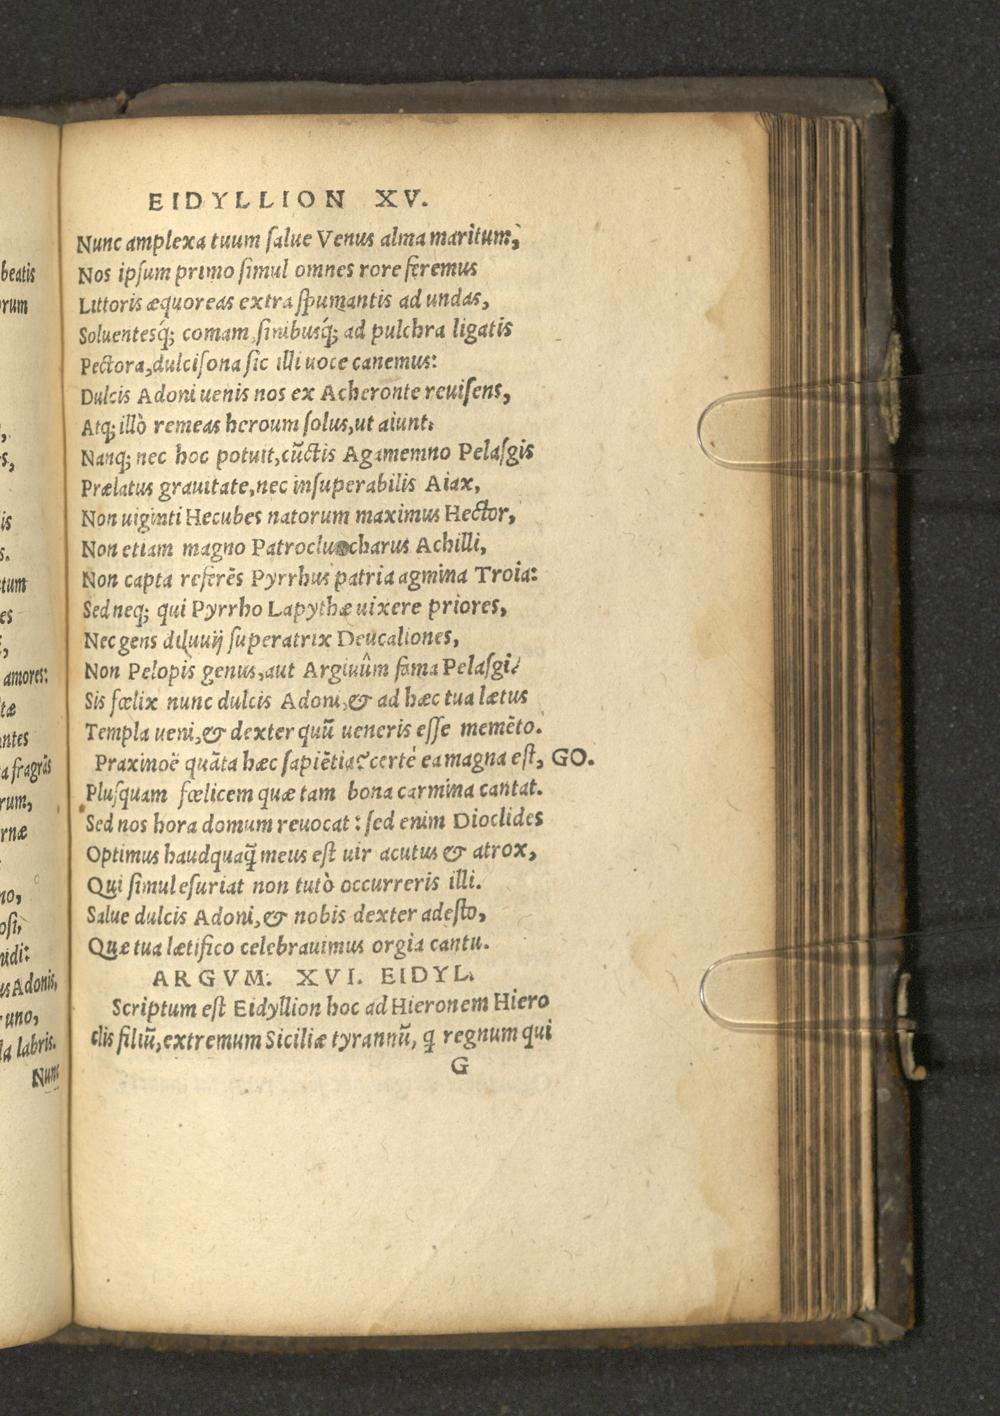 EIDYLLION XV.
Nunc amplexa tuum salue Venus alma maritum,
Nos ipsum primo simul omnes rore feremus
Littoris æquoreas extra spumantis ad undas,
Soluentesq́; comam, sinibusq́; ad pulchra ligatis
Pectora, dulcisona sic illi uoce canemus:
Dulcis Adoni uenis nos ex Acheronte reuisens,
Atq; illò remeas heroum solus, ut aiunt.
Nanq; nec hoc potuit, cūctis Agamemno Pelasgis
Prælatus grauitate, nec insuperabilis Aiax,
Non uiginti Hecubes natorum maximus Hector,
Non etiam magno Patroclus charus Achilli,
Non capta referēs Pyrrhus patria agmina Troia:
Sed neq; qui Pyrrho Lapythæ uixere priores,
Nec gens diluuij superatrix Deucaliones,
Non Pelopis genus, aut Argiuûm fama Pelasgi.
Sis fœlix nunc dulcis Adoni, & ad hæc tua lætus
Templa ueni, & dexter quū ueneris esse memēto.
Praxinoë quāta hæc sapiētia? certé ea magna est, GO.
Plusquam fœlicem quæ tam bona carmina cantat.
Sed nos hora domum reuocat: sed enim Dioclides
Optimus haudquaq̃ meus est uir acutus & atrox,
Qui simul esuriat non tutò occurreris illi.
Salue dulcis Adoni, & nobis dexter adesto,
Quæ tua lætifico celebrauimus orgia cantu.
ARGVM. XVI. EIDYL.
Scriptum est Eidyllion hoc ad Hieronem Hiero
clis filiū, extremum Siciliæ tyrannū, q regnum qui
G
beatis
orum
is
tum
es
amores:
tæ
antes
a fragrās
rum,
rnæ
no,
osi,
udi:
us Adonis,
uno,
la labris.
Nunc